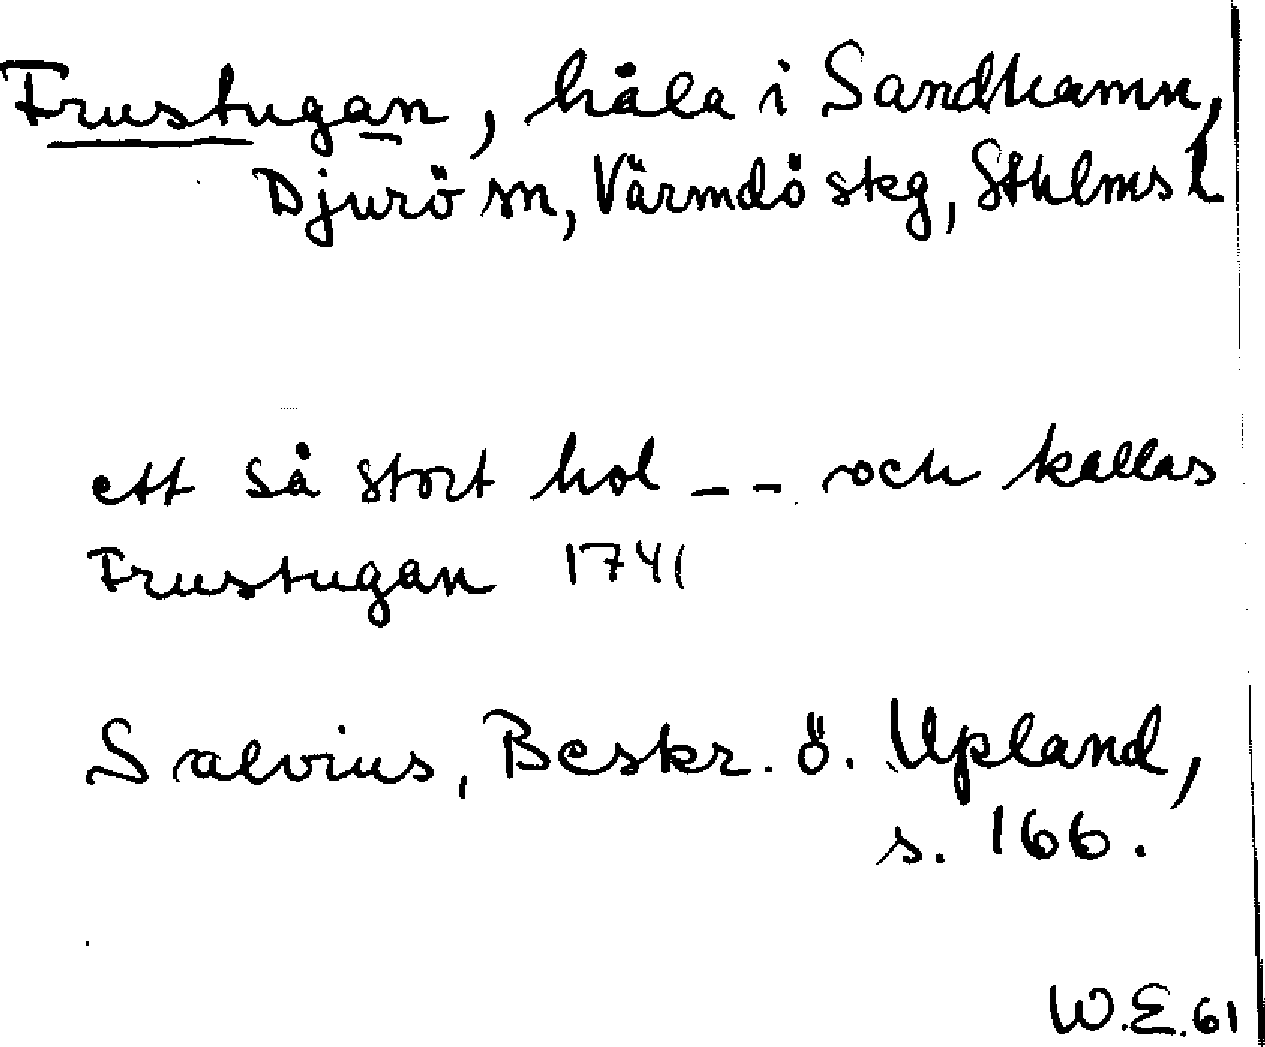 Frustugan, håla i Sandhamn,
Djurö sn, Värmdö skg, Sthlms l
ett så stort hol _ _ och kallas
Frustugan 1741
Salvius, Beskr. ö. Upland,
s. 166.
W.E. 61